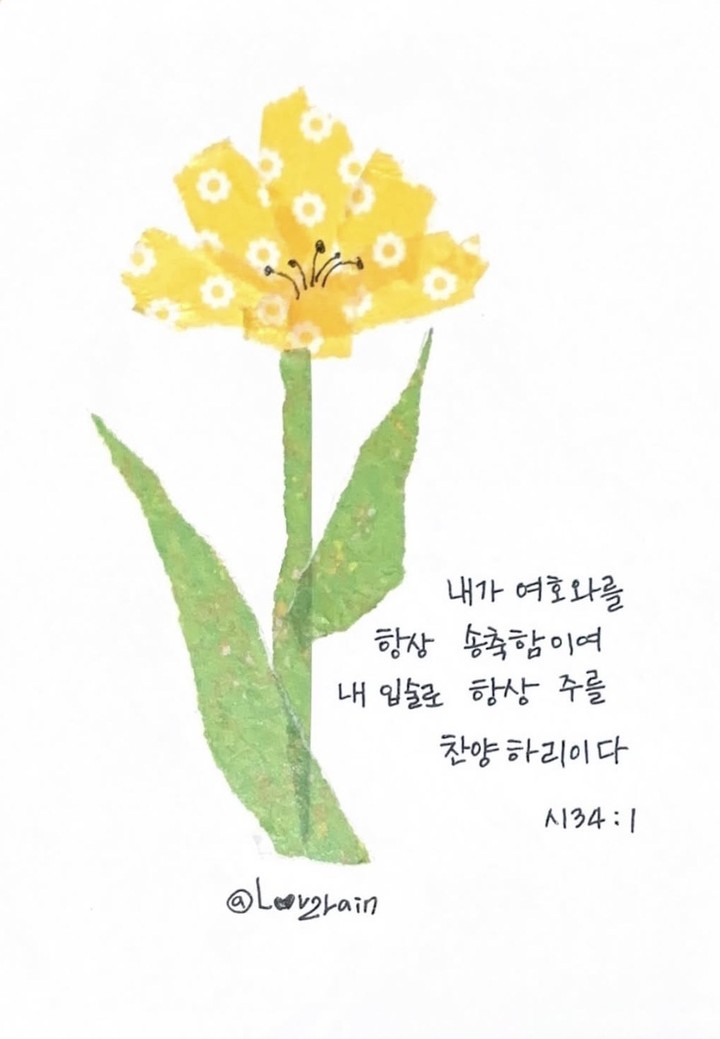 내가 여호와를
항상 송축함이여
내 입술로 항상 주를
찬양하리이다
시34:1
@L♥v2rain